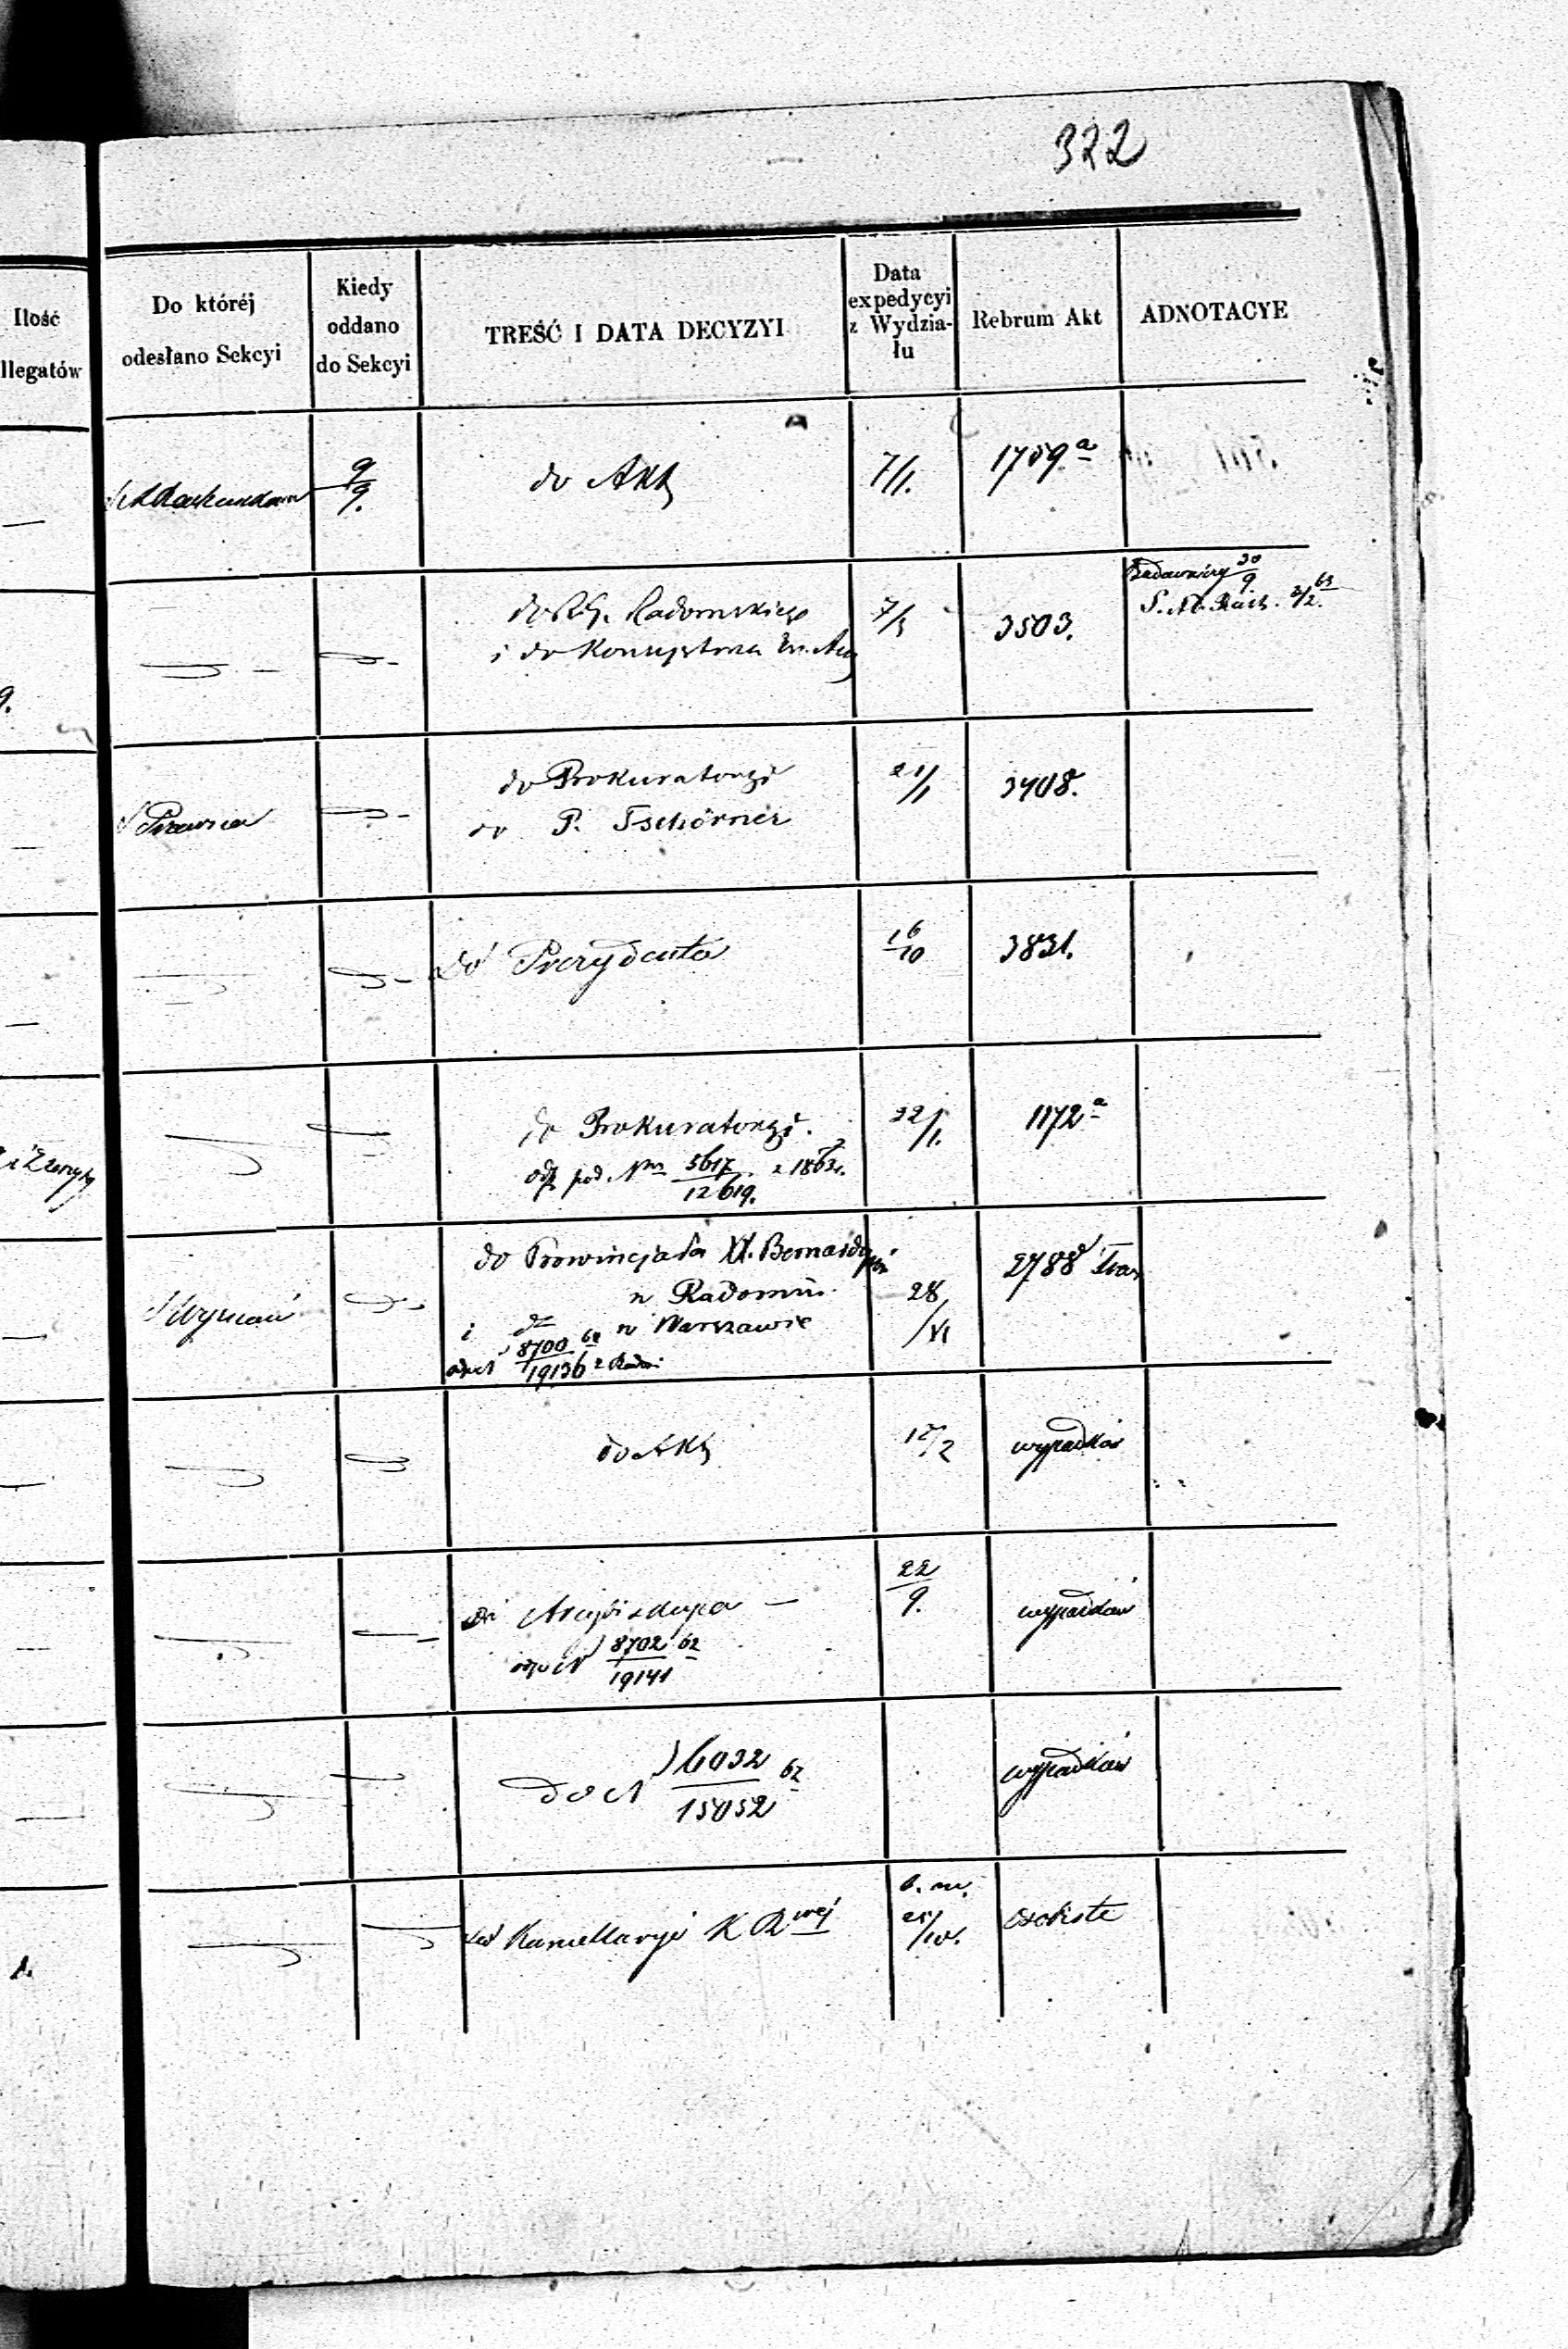 322
Ilość
llegatów
Do któréj
odesłano Sekcyi
Kiedy
oddano
do Sekcyi
TREŚĆ I DATA DECYZYI
Data
expedycyi
z Wydzia-
łu
Rebrum Akt
ADNOTACYE
9/9.
do Akt
7/1.
1709 a
30/9
do R. G. Radomskiego
i do Konsystorza Ew. Aug
7/3
3503.
S. M. 2/2. 63
Prawna
do Prokuratoryi
do P. Tschörner
21/1
3408.
do Prezydenta
16/10
3831.
do Prokuratoryi.
odp pod Nm 5617/12619. z 1863 r.
22/1.
1172 a
Wyznań
do Prowincjała XX. Bernardynów
w Radomiu
i do w Warszawie
8700/19136 62 z Radom
28/VI
2788
do Akt
12/2
wypadków
do Arcybiskupa —
odp N 8702/19141 62
22/9.
wypadków
do N 6032/15052 62
wypadków
do Kancellaryi K R wej
b. m.
25/10.
osobiste